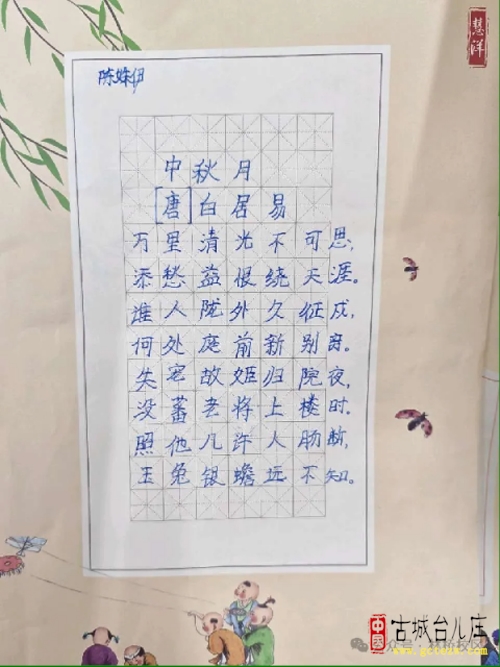 慧洋
陈姝伊
中秋月
[唐]白居易
万里清光不可思,
添愁益恨绕天涯。
谁人陇外久征戍,
何处庭前新别离。
失宠故姬归院夜,
没蕃老将上楼时。
照他几许人肠断,
玉兔银蟾远不知。
中国
古城台儿庄
公众号